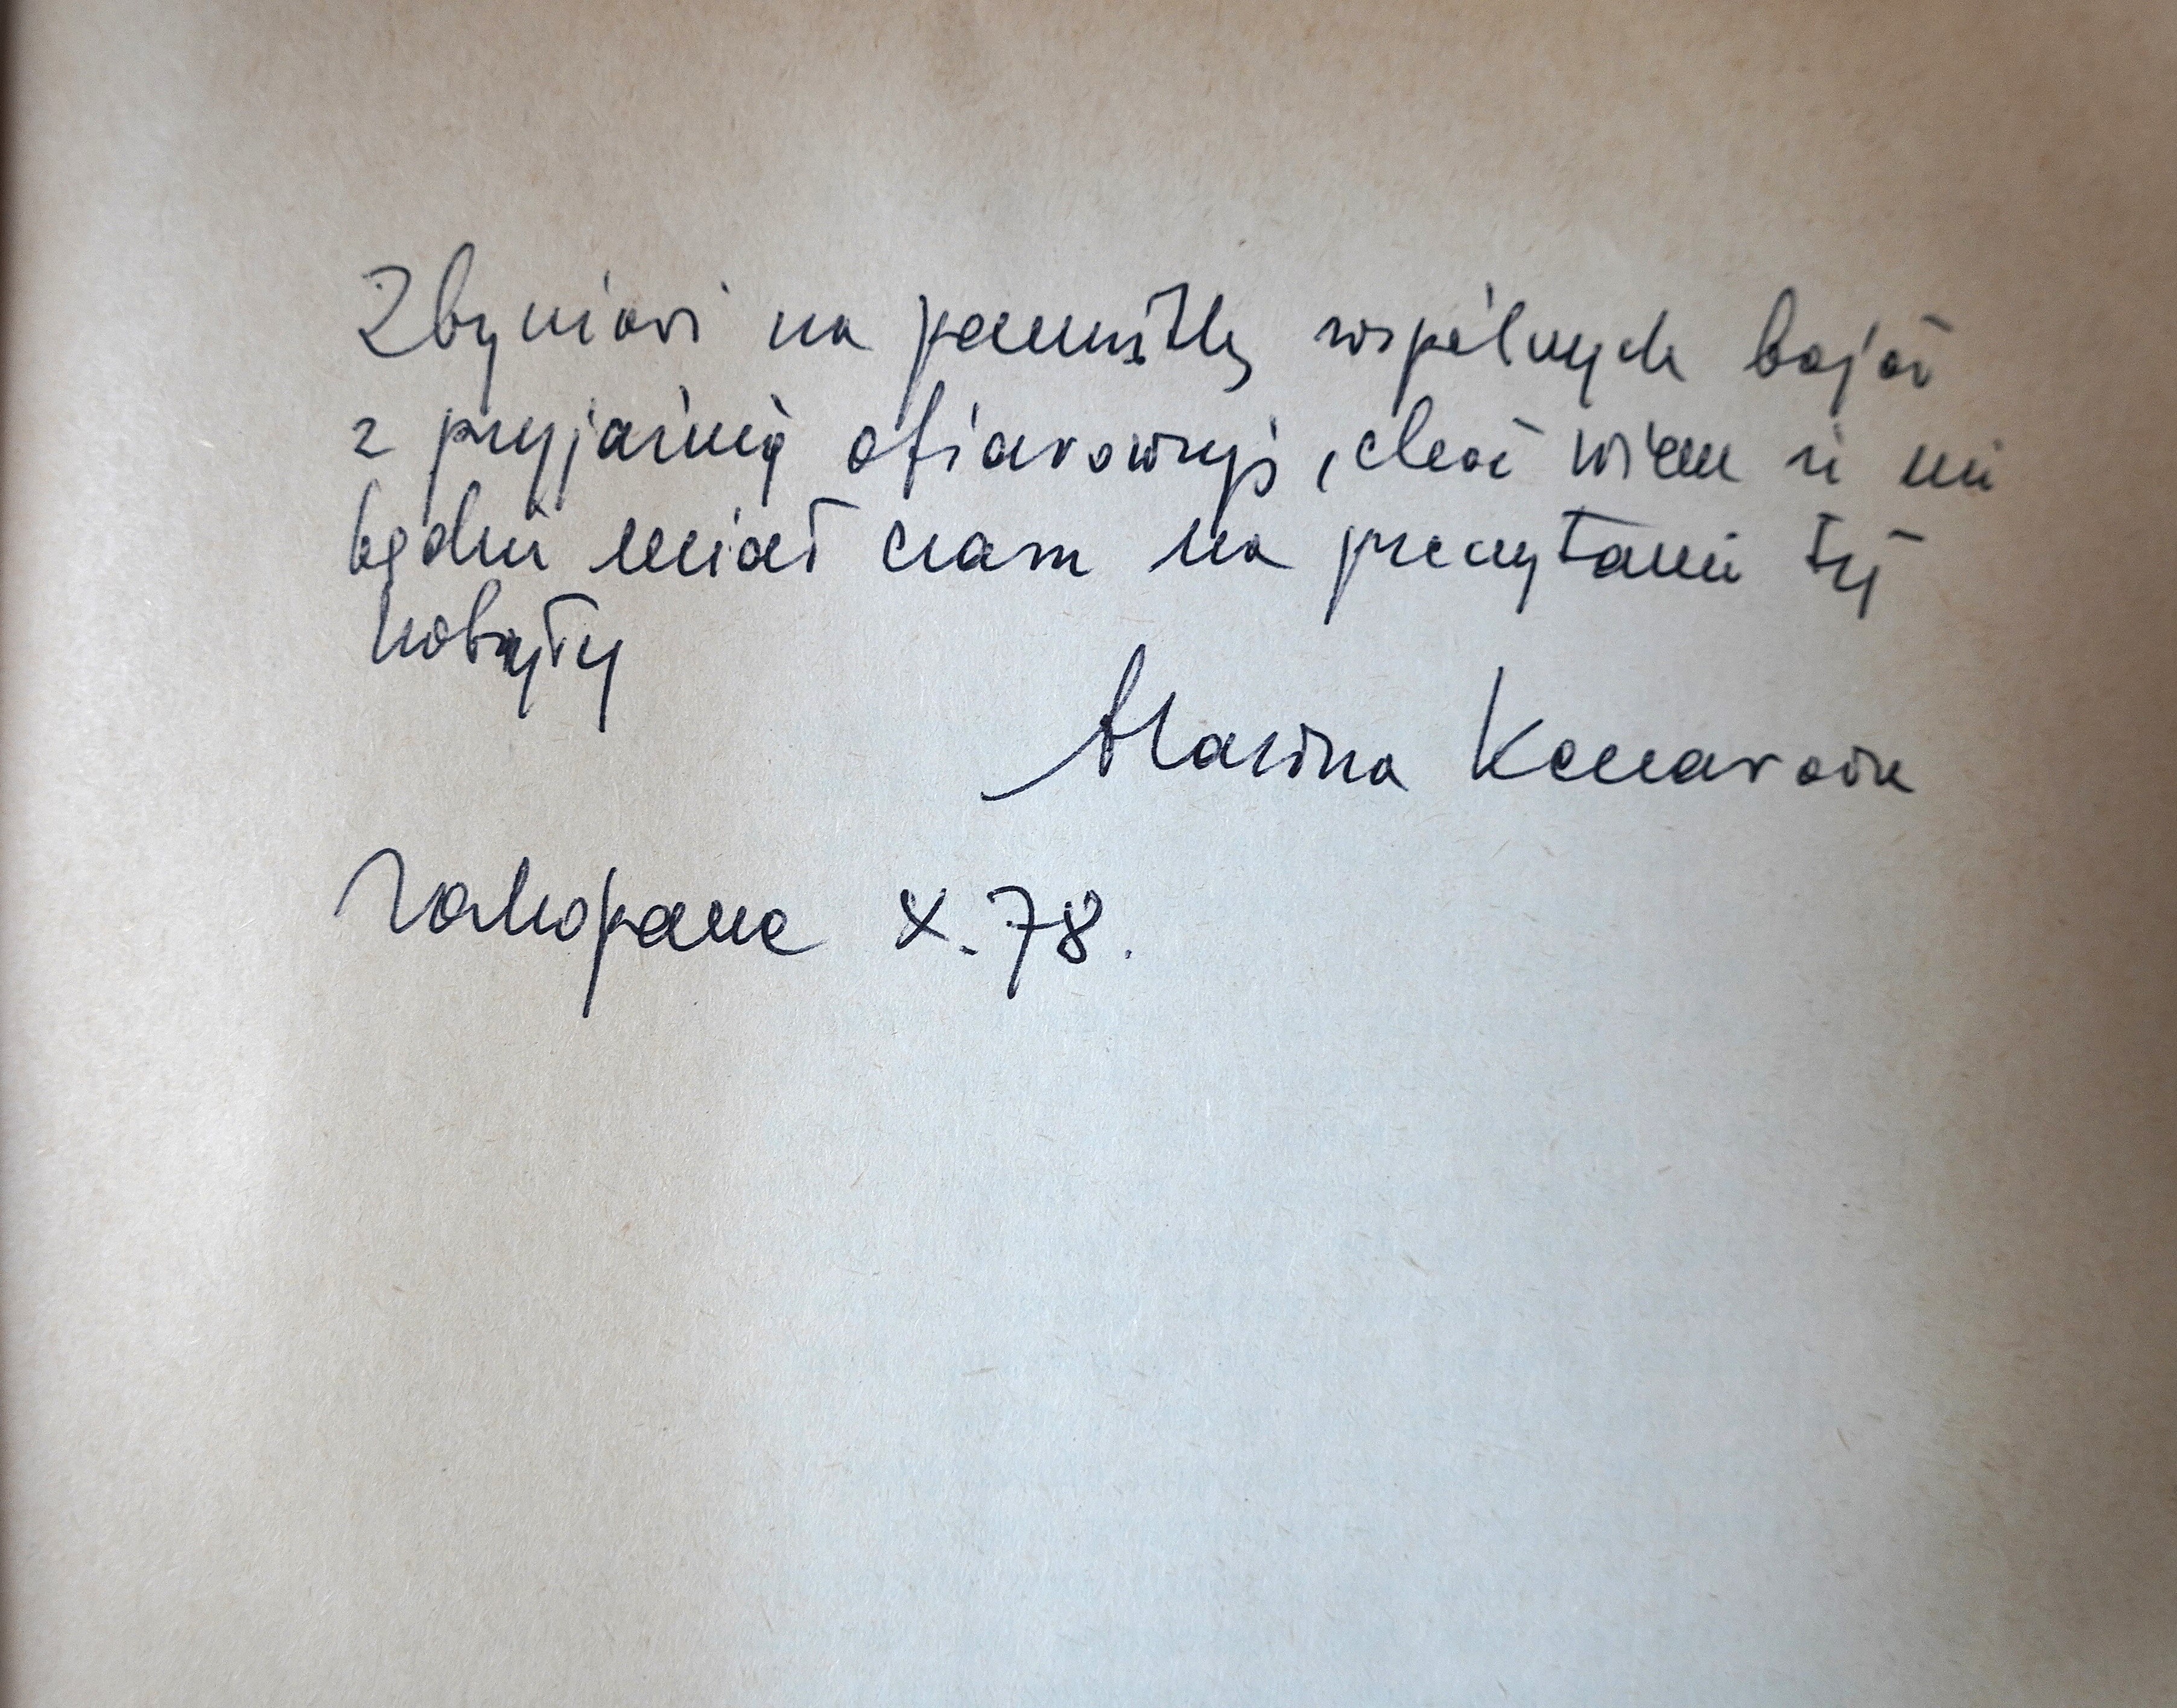 Zbyniowi na pamiątkę wspólnych bojów
z przyjaźnią ofiarowuję, choć wiem iż nie
będzie miał czasu na przeczytanie tej
kobyły
Zakopane X.78.